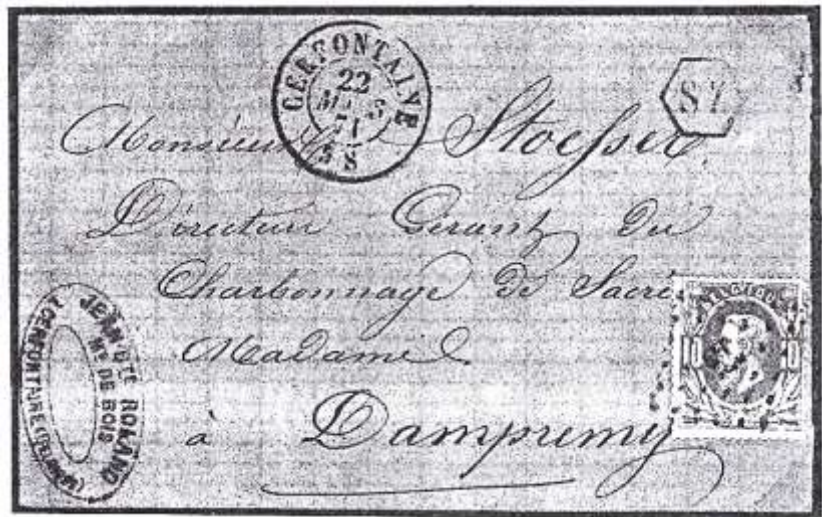 CERFONTAINE
22
71
Monsieur Stoesser
Directeur Gérant du
Charbonnage de Sacré
Madame
à Dampremy
JEAN Bte ROLAND
Md DE BOIS
A CERFONTAINE
BELGIQUE
10 10